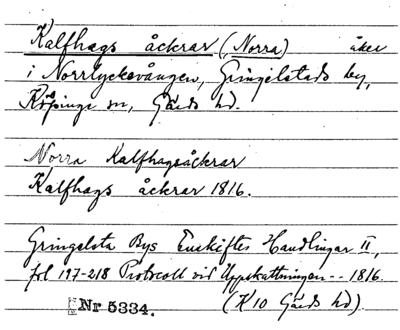 Kalfhags åckrar (Norra) åker
i Norrlyckevången, Gringelstads by,
Köpinge sn, Gärds hd.
Norra Kalfhagsåckrar
Kalfhags åckrar 1816.
Gringelsta Bys Enskiftes Handlingar II,
fol 197-218 Protocoll vid Uppskattningen -- 1816.
(K10 Gärds hd).
Nr 5334.